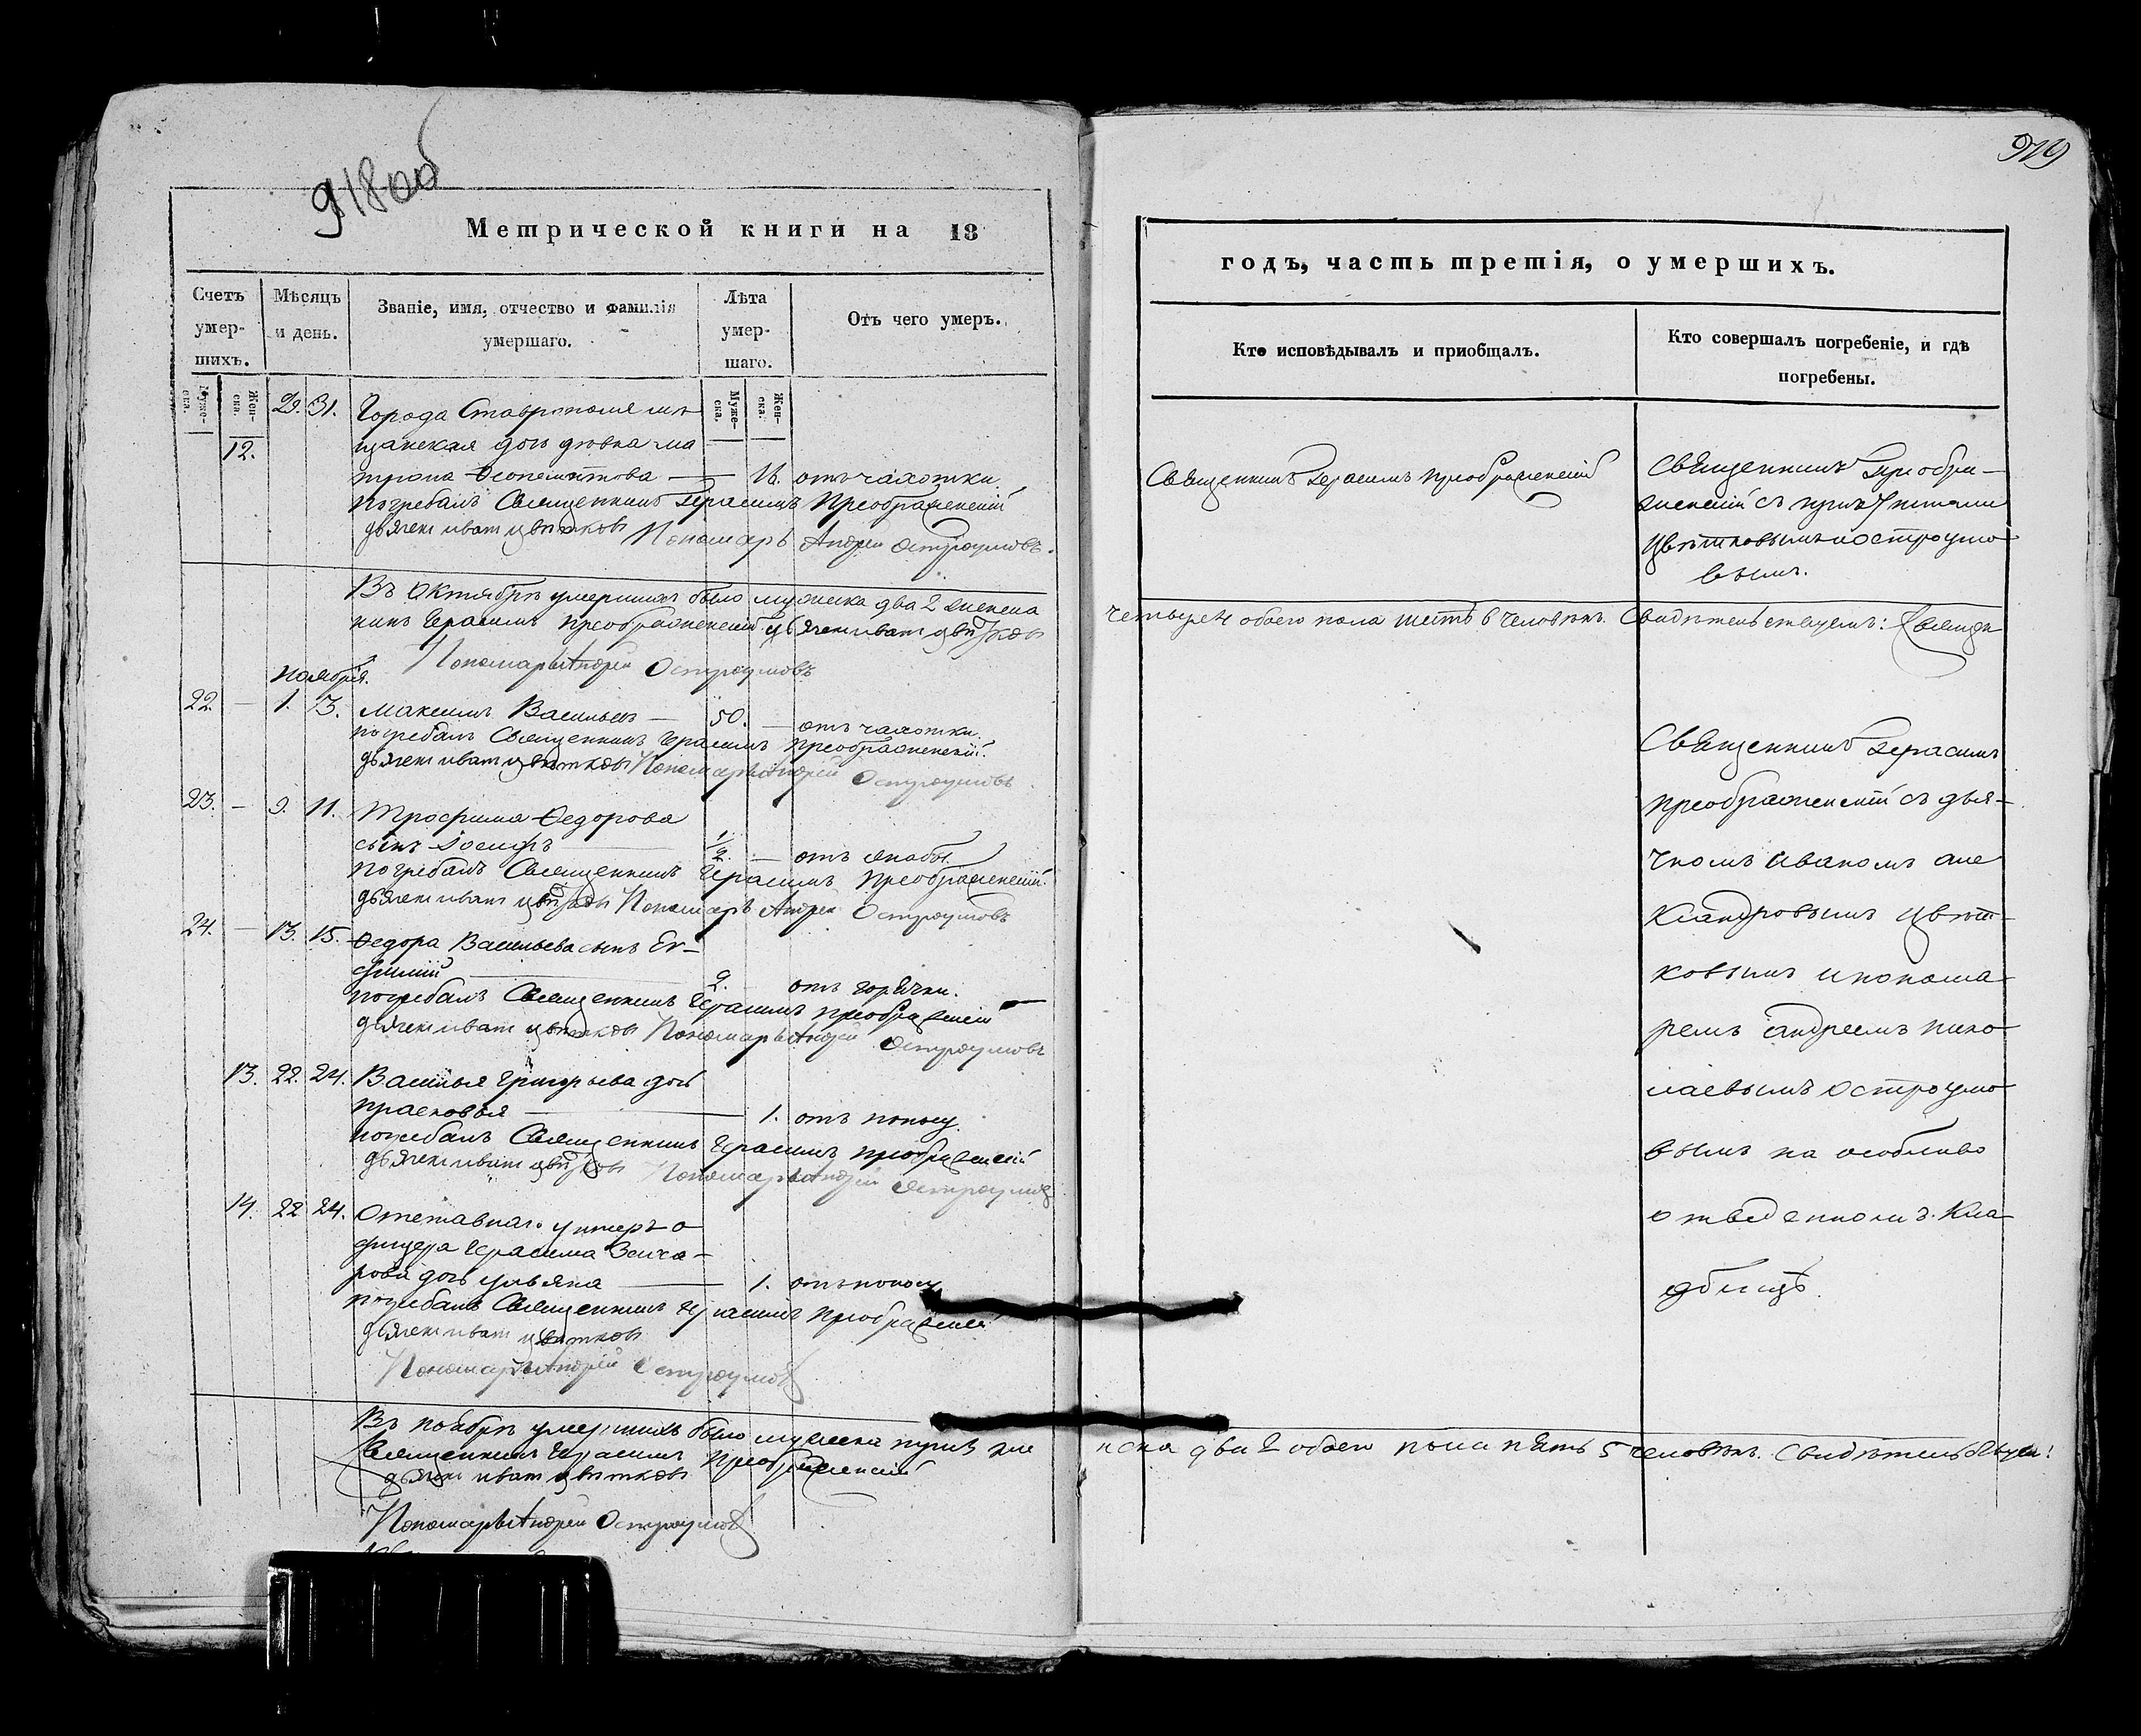 918 об
Метрической книги на 18
Счетъ умер-шихъ.
Мѣсяцъ и день.
Званіе, имя, отчество и фамилія умершаго.
Лѣта умер-шаго.
Отъ чего умеръ.
Муже-ска. Жен-ска.
Муже-ска. Жен-ска.
12. 29. 31. Города Ставрополя мѣ
щанская дочь дѣвка Ма
трона Ѳеопемптова — 16. отъ чахотки.
погребалъ Священникъ Герасимъ Преображенскій
дьячекъ иванъ цвѣтковъ Пономарь Андрей Остроумовъ.
Въ Октябрѣ умершихъ было мужска два 2 женска
никъ Герасимъ Преображенскій дьячекъ иванъ цвѣтковъ
Пономарь Андрей Остроумовъ
Ноября.
22. — 1. 3. Максимъ Васильевъ — 50. — отъ чахотки.
погребалъ Священникъ Герасимъ Преображенскій.
дьячекъ иванъ цвѣтковъ Пономарь Андрей Остроумовъ
23. — 9. 11. Трофима Ѳедорова
сынъ Іосифъ 1/2. — отъ
погребалъ Священникъ Герасимъ Преображенскій.
дьячекъ иванъ цвѣтковъ Пономарь Андрей Остроумовъ
24. — 13. 15. Ѳедора Васильева сынъ Ев-
фимій 2. отъ горячки.
погребалъ Священникъ Герасимъ Преображенскій
дьячекъ иванъ цвѣтковъ Пономарь Андрей Остроумовъ
13. 22. 24. Василья Григорьева дочь
Прасковья — 1. отъ поносу.
погребалъ Священникъ Герасимъ Преображенскій
дьячекъ иванъ цвѣтковъ Пономарь Андрей Остроумовъ
14. 22 24. Отставнаго унтеръ о
фицера Герасима Заха-
рова дочь ульяна — 1. отъ поносу
погребалъ Священникъ Герасимъ Преображенскій
дьячекъ иванъ цвѣтковъ
Пономарь Андрей Остроумовъ
Въ ноябрѣ умершихъ было мужеска три 3 же
Священникъ Герасимъ Преображенскій
дьячекъ иванъ цвѣтковъ
Пономарь Андрей Остроумовъ
919
годъ, часть третія, о умершихъ.
Кто исповѣдывалъ и пріобщалъ.
Кто совершалъ погребеніе, и гдѣ погребены.
Священникъ Герасимъ Преображенскій
Священникъ Преобра-
женскій с причетниками
Цвѣтковымъ и Остроумо
вымъ.
четыре 4 обоего пола шесть 6 человѣкъ. Свидѣтельствуемъ: Священ
Священникъ Герасимъ
Преображенскій съ дья-
чкомъ иваномъ але
ксандровымъ цвѣт-
ковымъ и понома
ремъ андреемъ нико
лаевымъ Остроумо
вымъ на особливо
отведенномъ кла
дбищѣ.
нска два 2 обоего пола пять 5 человѣкъ. Свидѣтельствуемъ: